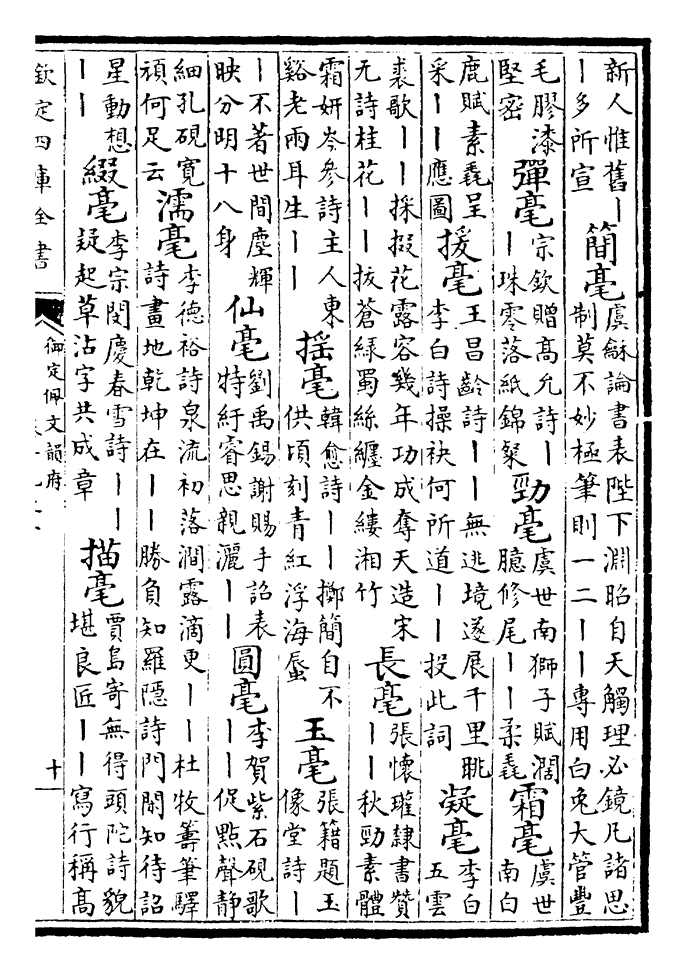 新人惟舊丨
丨多所宣
簡毫
虞龢論書表陛下淵昭自天觸理必鏡凡諸思
制莫不妙極筆則一二丨丨專用白兔大管豐
毛膠漆
堅密
彈毫
宗欽贈高允詩丨
丨珠零落紙錦粲
勁毫
虞世南獅子賦濶
臆修尾丨丨柔毳
霜毫
虞世
南白
鹿賦素毳呈
采丨丨應圖
援毫
王昌齡詩丨丨無逃境遂展千里眺
李白詩操袂何所道丨丨投此詞
凝毫
李白
五雲
裘歌丨丨採掇花露容幾年功成奪天造宋
无詩桂花丨丨抜蒼緑蜀絲纒金縷湘竹
長毫
張懷瓘隷書贊
丨丨秋勁素體
霜妍岑參詩主人東
谿老兩耳生丨丨
揺毫
韓愈詩丨丨擲簡自不
供頃刻青紅浮海蜃
玉毫
張籍題玉
像堂詩丨
丨不著世間塵輝
映分明十八身
仙毫
劉禹錫謝賜手詔表
特紆睿思親灑丨丨
圓毫
李賀紫石硯歌
丨丨促點聲静
細孔硯寛
頑何足云
濡毫
李德裕詩泉流初落澗露滴更丨丨杜牧籌筆驛
詩畫地乾坤在丨丨勝負知羅隠詩門闗知待詔
星動想
丨丨
綴毫
李宗閔慶春雪詩丨丨
疑起草沾字共成章
描毫
賈島寄無得頭陀詩貌
堪良匠丨丨寫行稱高
欽定四庫全書
御定佩文韻府
十